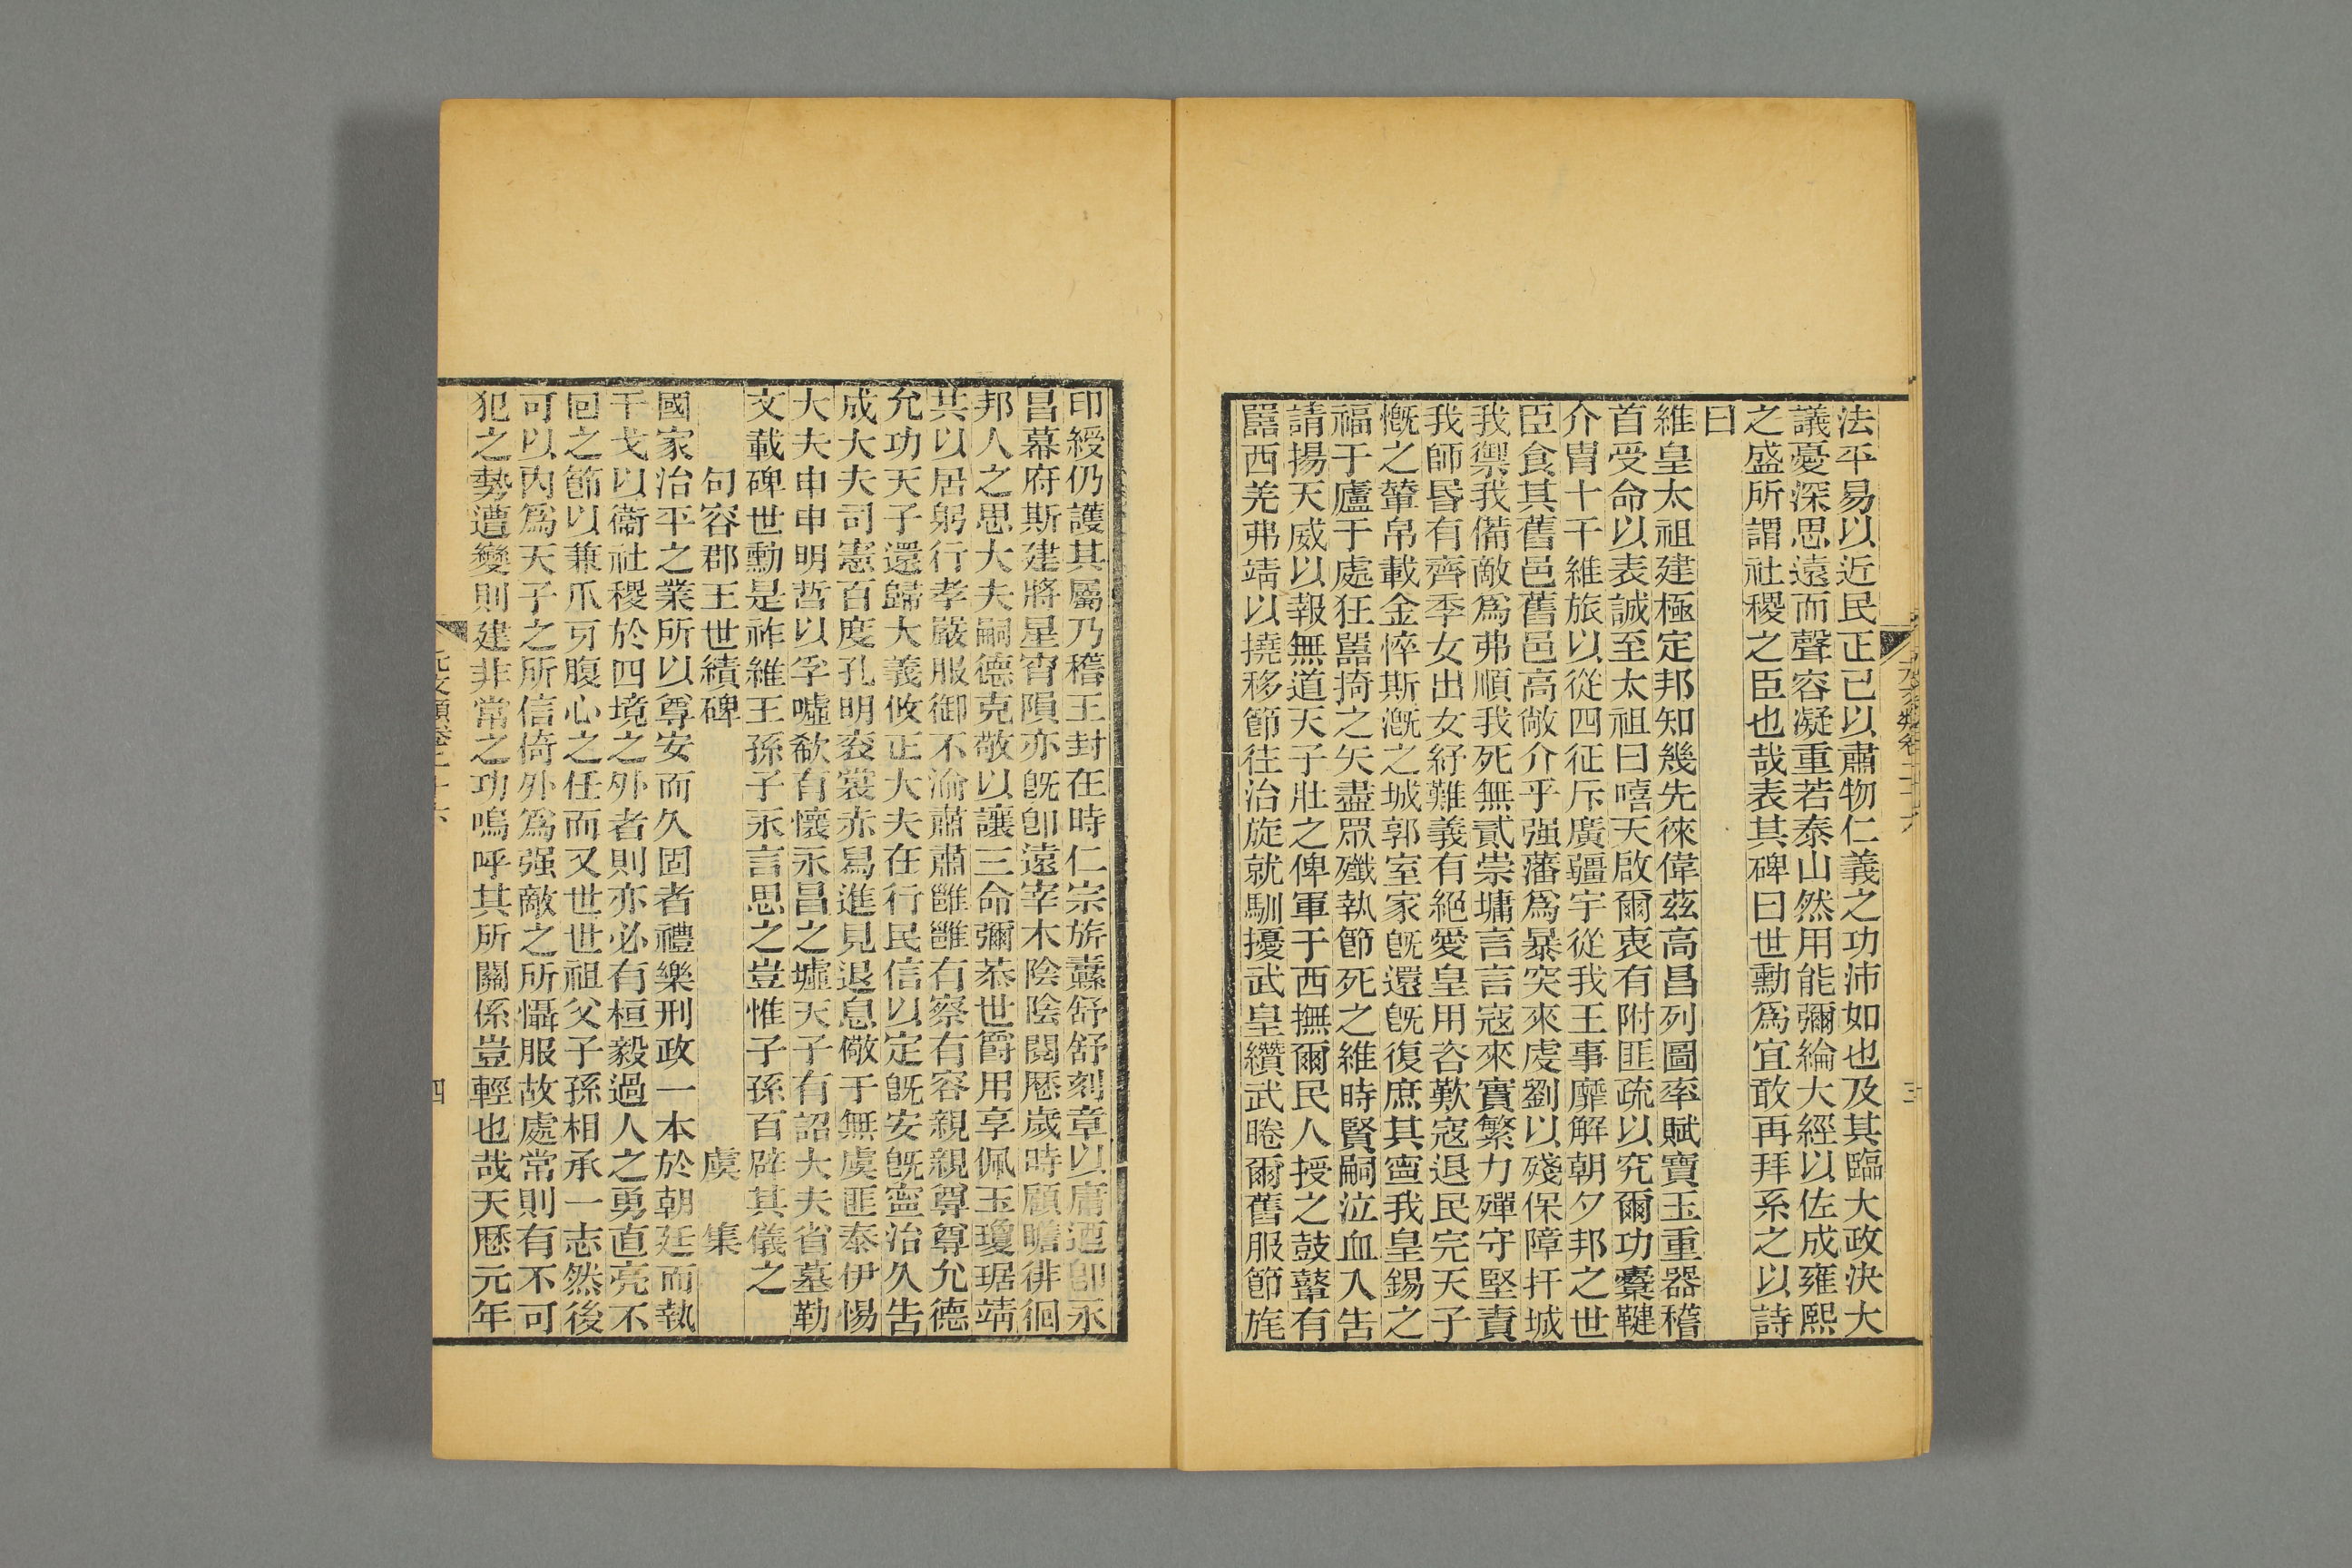 法平易以近民正已以肅物仁義之功沛如也及其臨大政決大
議憂深思遠而聲容凝重若泰山然用能彌綸大經以佐成雍熙
之盛所謂社稷之臣也哉表其碑曰世勳爲宜敢再拜系之以詩
曰
維皇太祖建極定邦知幾先徠偉茲高昌列圖率賦寶玉重器稽
首受命以表誠至太祖曰嘻天啟爾衷有附匪疏以究爾功櫜鞬
介冑十千維旅以從四征斥廣疆宇從我王事靡解朝夕邦之世
臣食其舊邑舊邑高敞介乎强藩爲暴突來虔劉以殘保障扞城
我禦我備敵爲弗順我死無貳崇墉言言寇來實繁力殫守堅賣
我師昬有齊季女出女紓難義有絕愛皇用咨歎寇退民完天子
慨之輦帛載金悴斯漑之城郭室家旣還旣復庶其寍我皇錫之
福于廬于處狂嚚掎之矢盡眾殲執節死之維時賢嗣泣血入告
請揚天威以報無道天子壯之俾軍于西撫爾民人授之鼓鼙有
嚚西羌弗靖以撓移節往治旋就馴擾武皇纘武睠爾舊服節旄
印綬仍護其屬乃稽王封在時仁宗旂纛舒舒刻章以庸迺卽永
昌幕府斯建將星宵隕亦旣卽遠宰木陰陰閱歷歲時顧瞻徘徊
邦人之思大夫嗣德克敬以讓三命彌恭世爵用享佩玉瓊琚靖
共以居躬行孝嚴服御不渝肅肅雝雝有察有容親親尊尊允德
允功天子還歸大義攸正大夫在行民信以定旣安旣寍治久告
成大夫司憲百度孔明衮裳赤舄進見退息儆于無虞匪泰伊惕
大夫申申明哲以孚噓欷有懷永昌之墟天子有詔大夫省墓勒
文載碑世勳是祚維王孫子永言思之豈惟子孫百辟其儀之
句容郡王世績碑　虞　集
國家治平之業所以尊安而久固者禮樂刑政一本於朝廷而執
干戈以衞社稷於四境之外者則亦必有桓毅過人之勇直亮不
回之節以兼爪牙腹心之任而又世世祖父子孫相承一志然後
可以內爲天子之所信倚外爲强敵之所懾服故處常則有不可
犯之勢遭變則建非常之功嗚呼其所關係豈輕也哉天歷元年
四